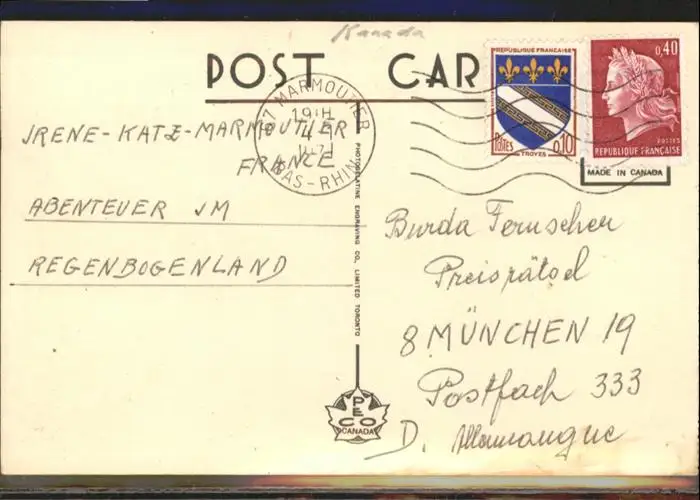 Kanada
POST CAR
REPUBLIQUE FRANÇAISE
POSTES
0,10
TROYES
0,40
POSTES
REPUBLIQUE FRANÇAISE
MADE IN CANADA
67 MARMOUTIER
19H
4
BAS-RHIN
IRENE-KATZ-MARMOUTIER
FRANCE
ABENTEUER IM
REGENBOGENLAND
PHOTOGELATINE ENGRAVING CO. LIMITED TORONTO
PECO
CANADA
Burda Fernseher
Preisrätsel
8 MÜNCHEN 19
Postfach 333
D. Allemangue